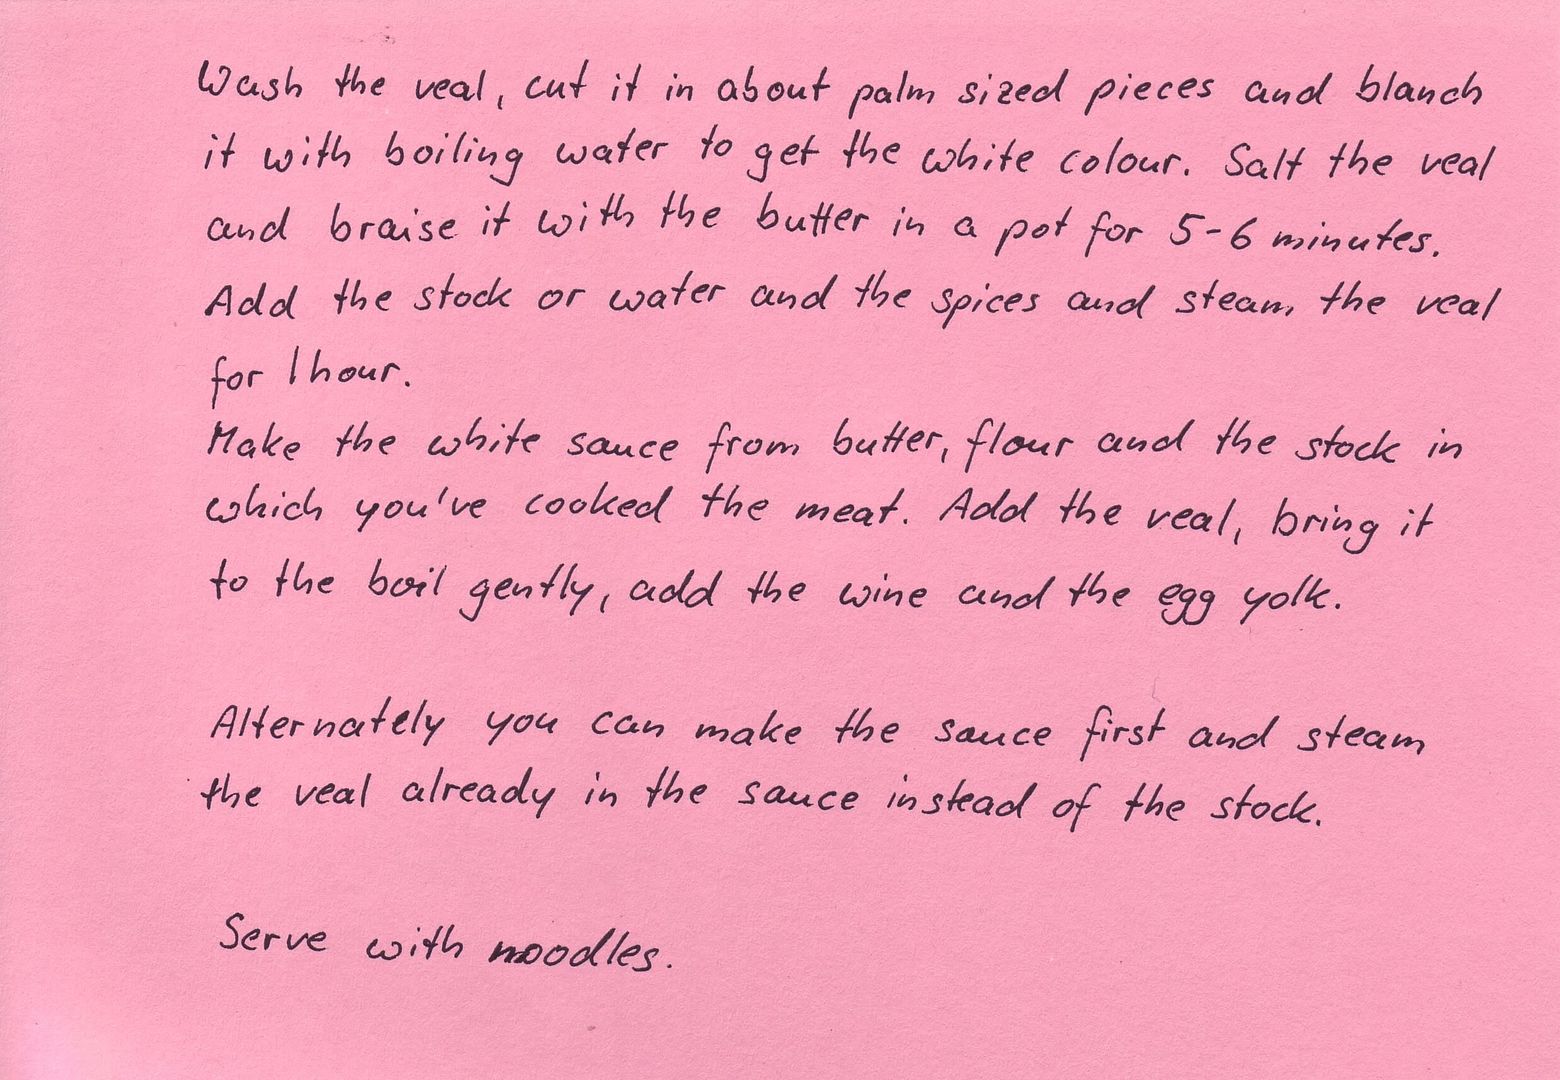 Wash the veal, cut it in about palm sized pieces and blanch
it with boiling water to get the white colour. Salt the veal
and braise it with the butter in a pot for 5-6 minutes.
Add the stock or water and the spices and steam the veal
for 1 hour.
Make the white sauce from butter, flour and the stock in
which you've cooked the meat. Add the veal, bring it
to the boil gently, add the wine and the egg yolk.
Alternately you can make the sauce first and steam
the veal already in the sauce instead of the stock.
Serve with noodles.